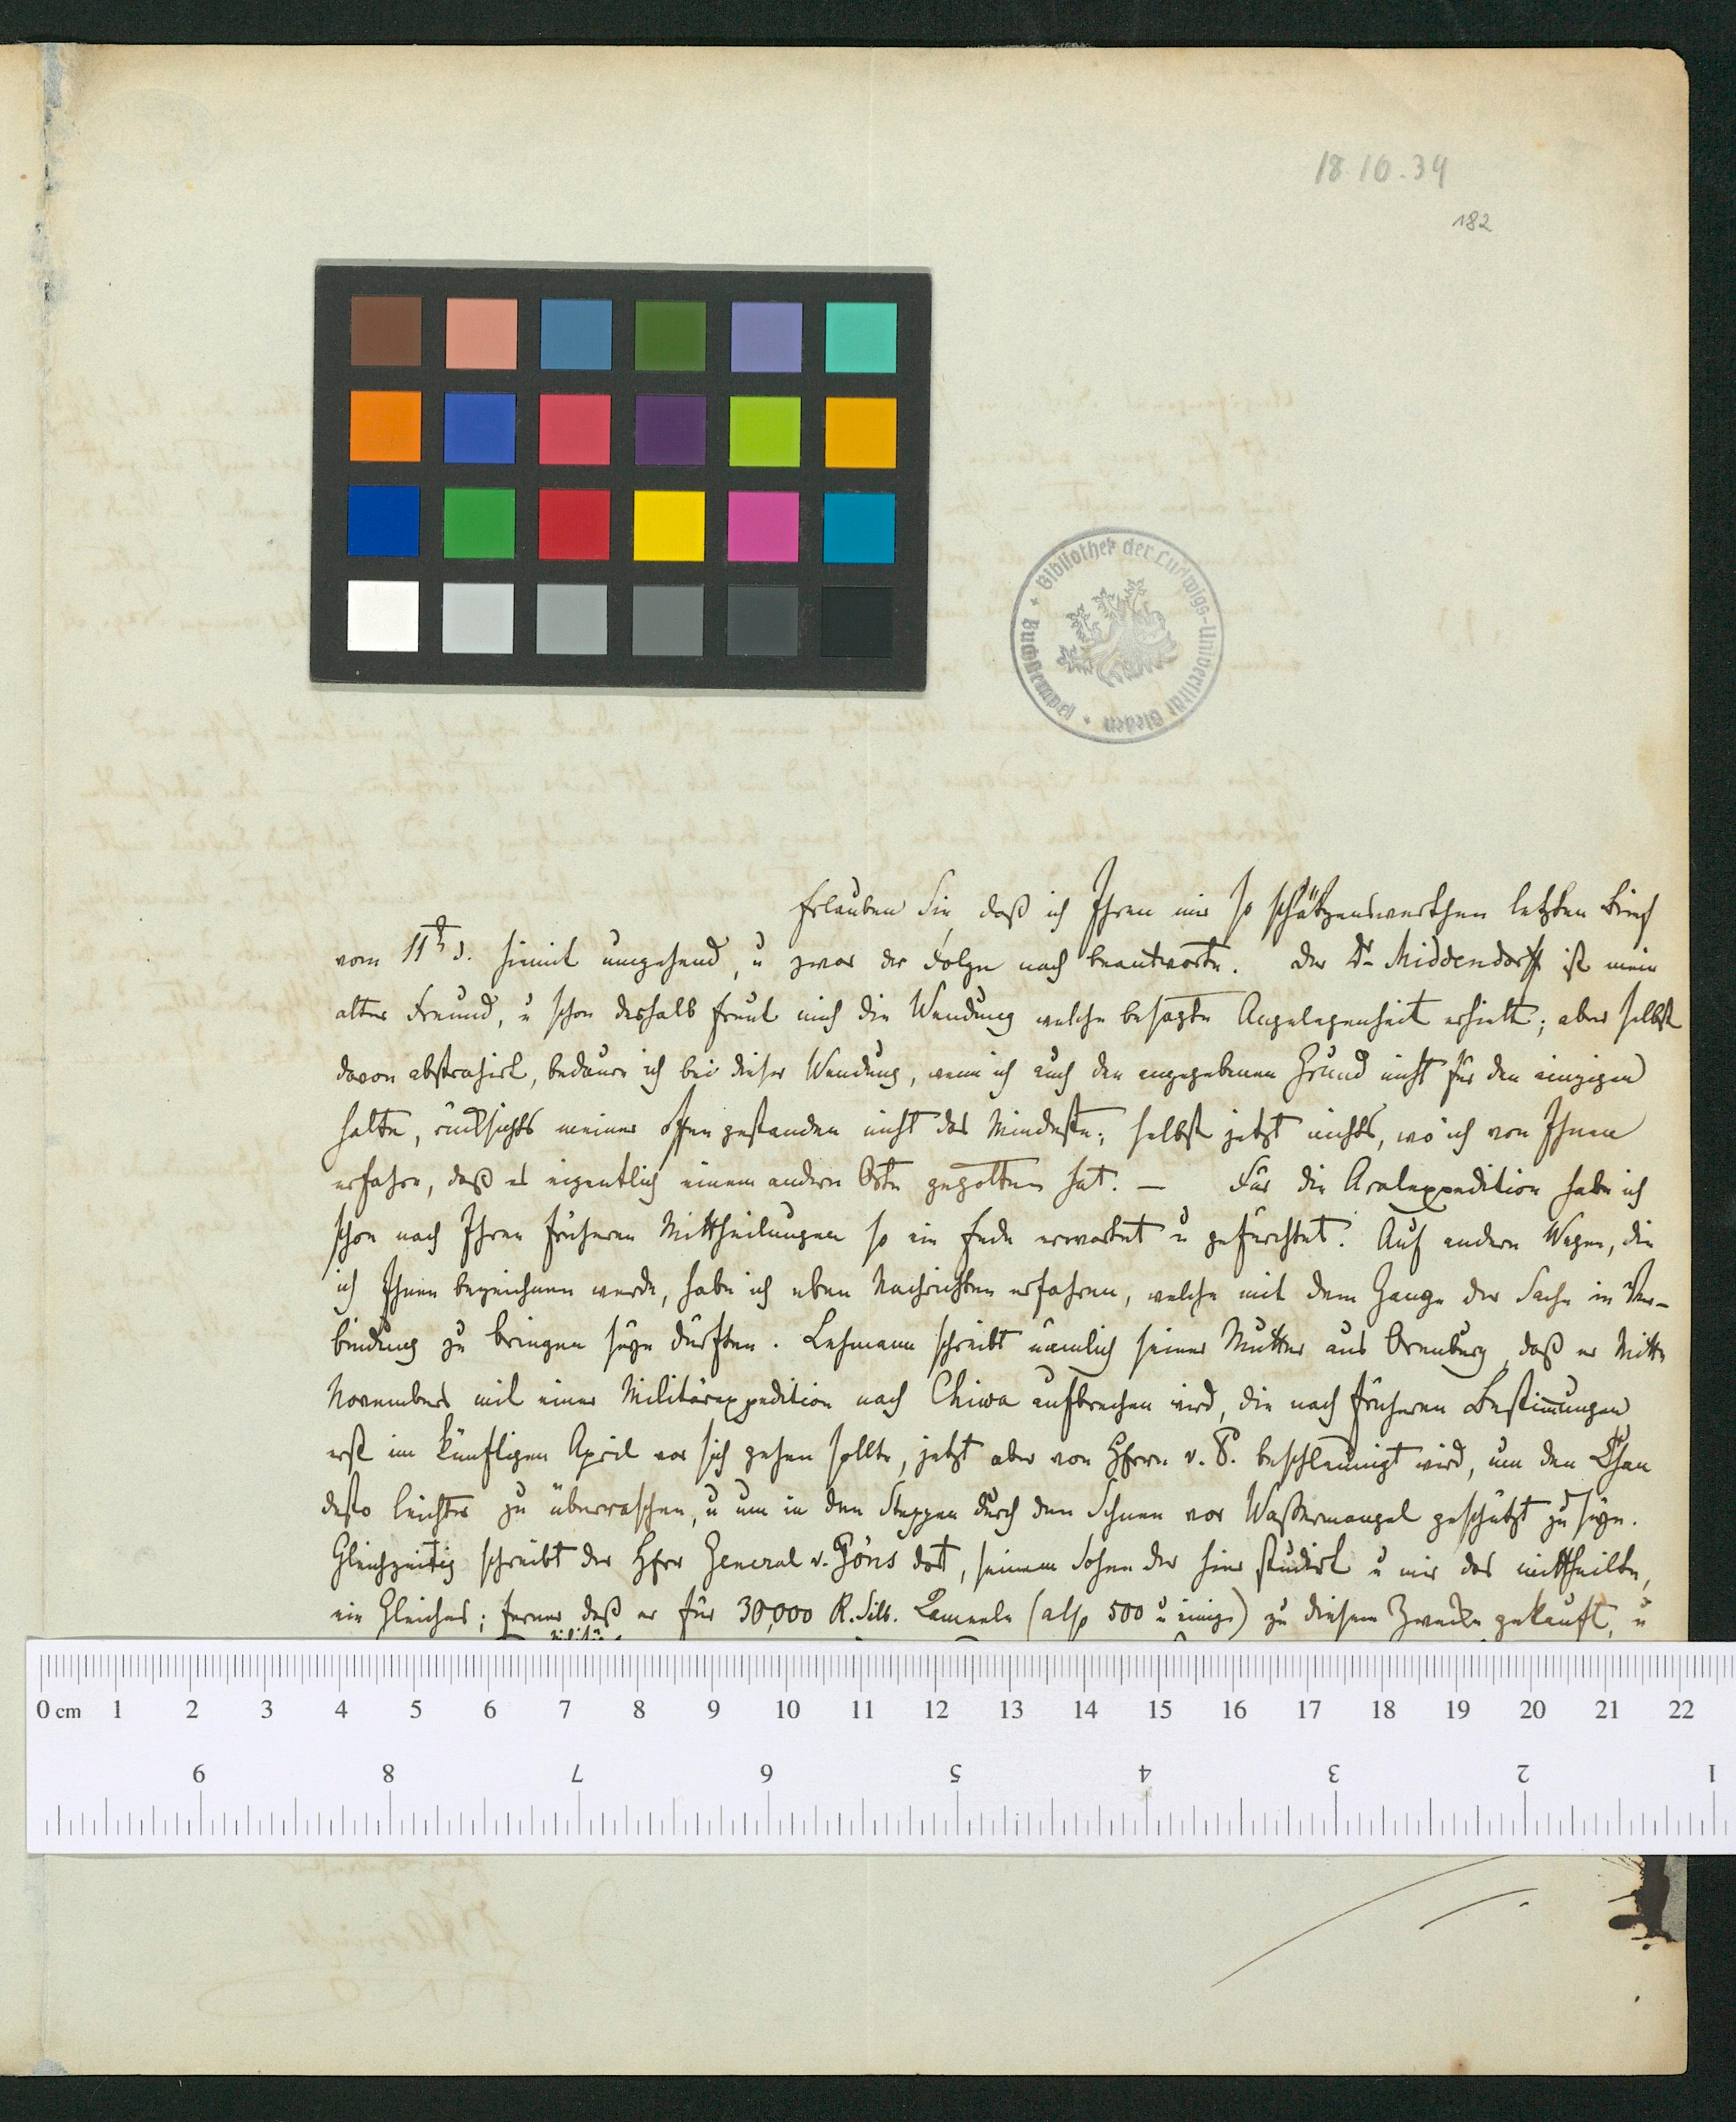 18.10.39
182
Bibliothek der Ludwigs-Universität Gießen * Buchstempel *
Erlauben Sie, daß ich Ihren mir so schätzenswerthen letzten Brief
vom 11t d. hiemit umgehend, u zwar der Folge nach beantworte. Der Dr Middendorff ist mein
alter Freund, u schon deshalb freut mich die Wendung welche besagte Angelegenheit erhielt; aber selbst
davon abstrahirt, bedaure ich bei dieser Wendung, wenn ich auch den angegebenen Grund nicht für den einzigen
halte, rücksichts meiner offen gestanden nicht das Mindeste; selbst jetzt nichts, wo ich von Ihnen
erfahre, daß es eigentlich einem andern Orte gegolten hat. — Für die Aralexpedition habe ich
schon nach Ihren früheren Mittheilungen so ein Ende erwartet u gefürchtet. Auf andern Wegen, die
ich Ihnen bezeichnen werde, habe ich eben Nachrichten erfahren, welche mit dem Gange der Sache in Ver-
bindung zu bringen seyn dürften. Lehmann schreibt nämlich seiner Mutter aus Orenburg, daß er Mitte
Novembers mit einer Militärexpedition nach Chiwa aufbrechen wird, die nach früheren Bestimmungen
erst im künftigen April vor sich gehen sollte, jetzt aber von Hfrrn v. P. beschleunigt wird, um den Chan
desto leichter zu überraschen, u um in den Steppen durch den Schnee vor Wassermangel geschützt zu seyn.
Gleichzeitig schreibt der Hfrr General v. Göns dort, seinem Sohne der hier studirt u mir das mittheilte,
ein Gleiches; ferner daß er für 30,000 R. Silb. Kameele (also 500 u einige) zu diesem Zwecke gekauft, u
0 cm 1 2 3 4 5 6 7 8 9 10 11 12 13 14 15 16 17 18 19 20 21 22
9 8 7 6 5 4 3 2 1